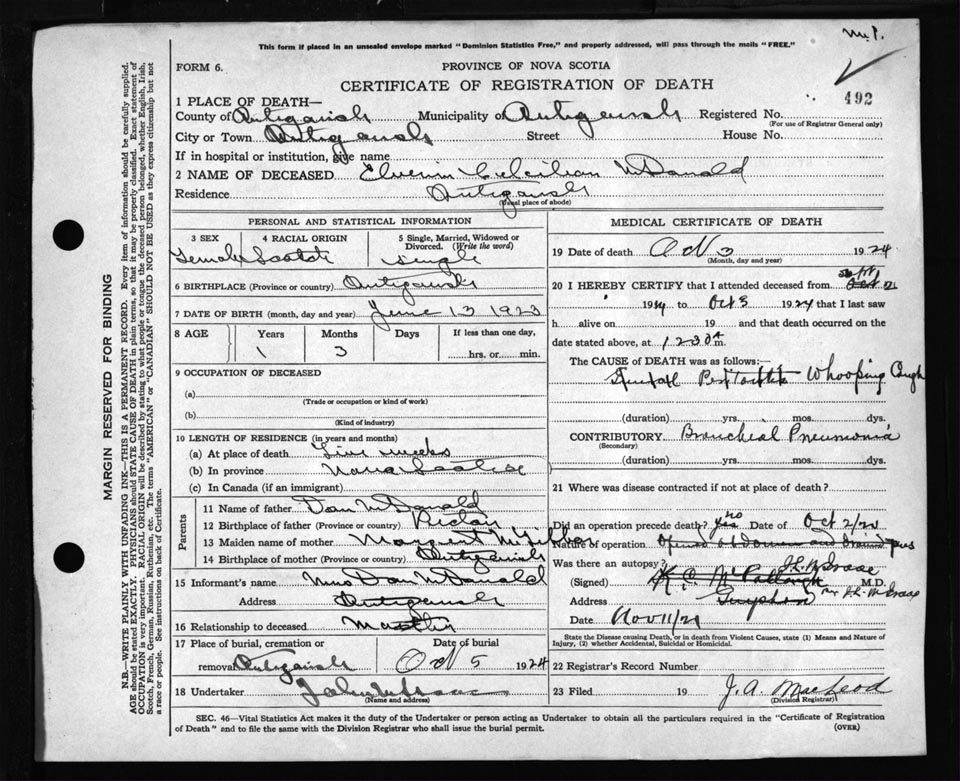 This form if placed in an unsealed envelope marked "Dominion Statistics Free," and properly addressed, will pass through the mails "FREE."
FORM 6.
PROVINCE OF NOVA SCOTIA
CERTIFICATE OF REGISTRATION OF DEATH
492
1 PLACE OF DEATH—
County of Antigonish Municipality of Antigonish Registered No.
(For use of Registrar General only)
City or Town Antigonish Street House No.
If in hospital or institution, give name
2 NAME OF DECEASED McDonald
Residence Antigonish
(Usual place of abode)
PERSONAL AND STATISTICAL INFORMATION
3 SEX 4 RACIAL ORIGIN 5 Single, Married, Widowed or Divorced. (Write the word)
Female Scotch single
6 BIRTHPLACE (Province or country) Antigonish
7 DATE OF BIRTH (month, day and year) June 13 1923
8 AGE Years Months Days If less than one day,
1 3 hrs. or min.
9 OCCUPATION OF DECEASED
(a)
(Trade or occupation or kind of work)
(b)
(Kind of industry)
10 LENGTH OF RESIDENCE (in years and months)
(a) At place of death weeks
(b) In province Nova Scotia
(c) In Canada (if an immigrant)
Parents
11 Name of father Dan McDonald
12 Birthplace of father (Province or country) Pictou
13 Maiden name of mother Margaret
14 Birthplace of mother (Province or country) Antigonish
15 Informant's name Mrs Dan McDonald
Address Antigonish
16 Relationship to deceased Mother
17 Place of burial, cremation or Date of burial
removal Antigonish Oct 5 1924
18 Undertaker
(Name and address)
MEDICAL CERTIFICATE OF DEATH
19 Date of death Oct 3 1924
(Month, day and year)
20 I HEREBY CERTIFY that I attended deceased from
19 to Oct 3 1924 that I last saw
h alive on 19 and that death occurred on the
date stated above, at 12 30 m.
The CAUSE of DEATH was as follows:
Whooping Cough
(duration) yrs. mos. dys.
CONTRIBUTORY Bronchial Pneumonia
(Secondary)
(duration) yrs. mos. dys.
21 Where was disease contracted if not at place of death?
Did an operation precede death? yes no Date of Oct 2/24
Nature of operation Opened abdomen and drained pus
Was there an autopsy?
(Signed) M.D.
Address
Date Nov 11/24
State the Disease causing Death, or in death from Violent Causes, state (1) Means and Nature of
Injury, (2) whether Accidental, Suicidal or Homicidal.
22 Registrar's Record Number
23 Filed 19 J. A. MacLeod
(Division Registrar)
SEC. 46—Vital Statistics Act makes it the duty of the Undertaker or person acting as Undertaker to obtain all the particulars required in the "Certificate of Registration
of Death" and to file the same with the Division Registrar who shall issue the burial permit.
(OVER)
MARGIN RESERVED FOR BINDING
N.B.—WRITE PLAINLY WITH UNFADING INK—THIS IS A PERMANENT RECORD. Every item of information should be carefully supplied.
AGE should be stated EXACTLY. PHYSICIANS should STATE CAUSE OF DEATH in plain terms, so that it may be properly classified. Exact statement of
OCCUPATION is very important. RACIAL ORIGIN will be described by stating to what people or tongue the deceased person belonged, whether English, Irish,
Scotch, French, German, Russian, Ruthenian, etc. The terms "AMERICAN" or "CANADIAN" SHOULD NOT BE USED as they express citizenship but not
a race or people. See instructions on back of Certificate.